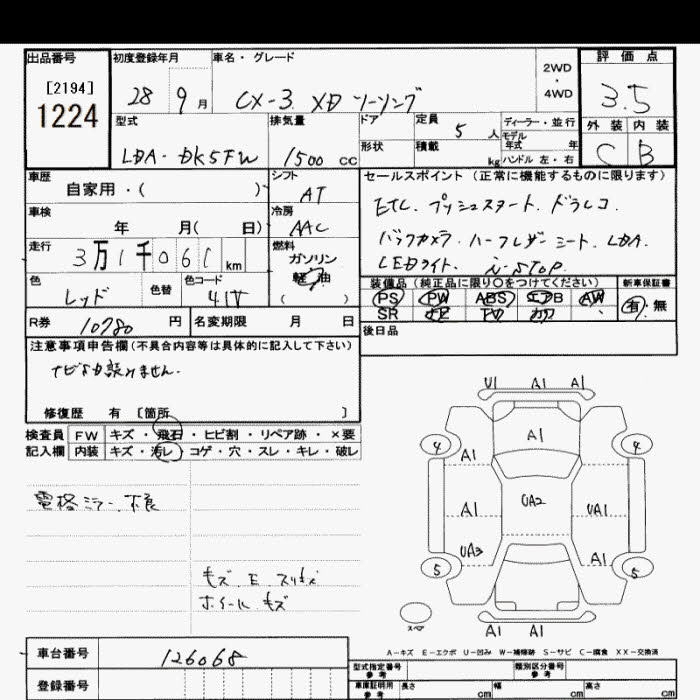 出品番号 初度登録年月 車名・グレード 2WD・4WD 評価点
[2194]
1224
28 9月 CX-3 XD ツーリング 3.5
型式 排気量 ドア 定員 5人 ディーラー・並行 外装 内装
モデル年式 年
LDA-DK5FW 1500cc 形状 積載 kg ハンドル 左・右 C B
車歴 シフト セールスポイント(正常に機能するものに限ります)
自家用・( ) AT
ETC. プッシュスタート. ドラレコ.
車検 冷房
年 月( 日) AAC
バックカメラ. ハーフレザーシート. LDA.
走行 燃料
3万1千061km ガソリン
軽油
( )
LEDライト. i-STOP.
色 色替 色コード 装備品(純正品に限り○をつけてください) 新車保証書
レッド 41V PS PW ABS エアB AW 有・無
SR ナビ TV カワ
R券 10780円 名変期限 月 日 後日品
注意事項申告欄(不具合内容等は具体的に記入して下さい)
ナビよみ込みません.
修復歴 有 [箇所 ]
検査員 FW キズ・飛石・ヒビ割・リペア跡・×要
記入欄 内装 キズ・汚レ・コゲ・穴・スレ・キレ・破レ
電格ミラー不良
キズ E スリキズ
ホイールキズ
U1 A1 A1
4 A1 4
A1
A1 UA2 UA1
UA3 A1
5 5
スペア A1 A1
A-キズ E-エクボ U-凹み W-補修跡 S-サビ C-腐食 XX-交換済
車台番号 126068 型式指定番号 参考 類別区分番号 参考
登録番号 車庫証明用 参考 長さ cm 幅 cm 高さ cm